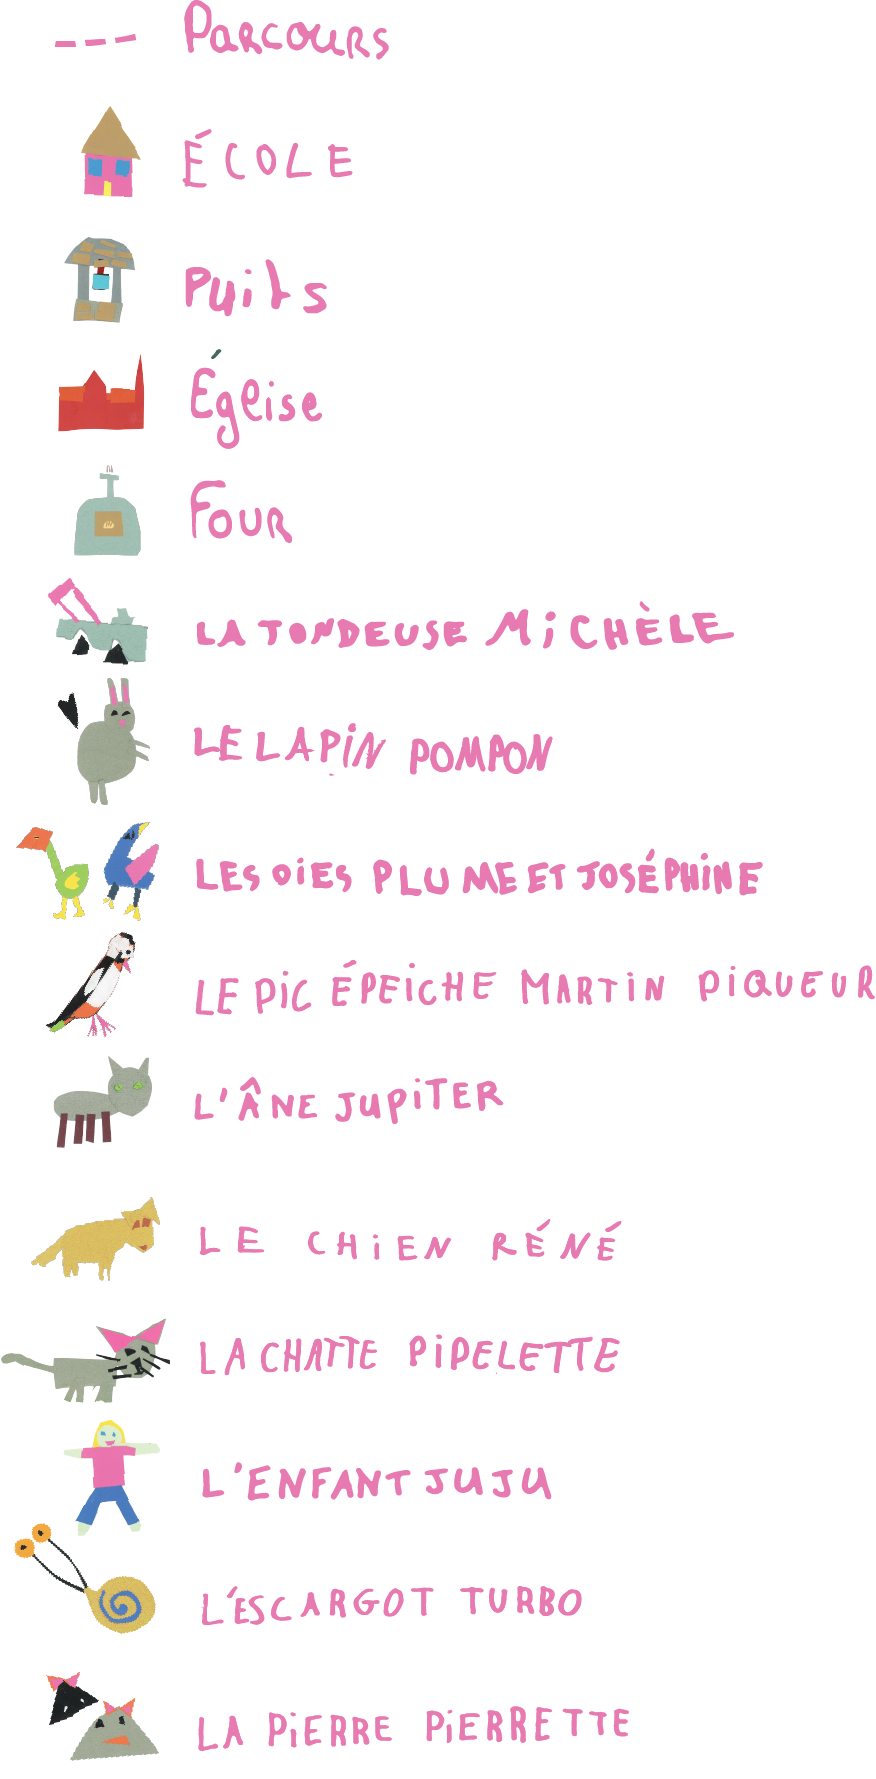 Parcours
ÉCOLE
Puits
Église
Four
LA TONDEUSE MiCHÈLE
LE LAPiN POMPON
LES OiES PLUME ET JOSÉPHiNE
LE PiC ÉPEiCHE MARTiN PiQUEUR
L'ÂNE JUPiTER
LE CHiEN RÉNÉ
LA CHATTE PiPELETTE
L'ENFANT JUJU
L'ESCARGOT TURBO
LA PiERRE PiERRETTE